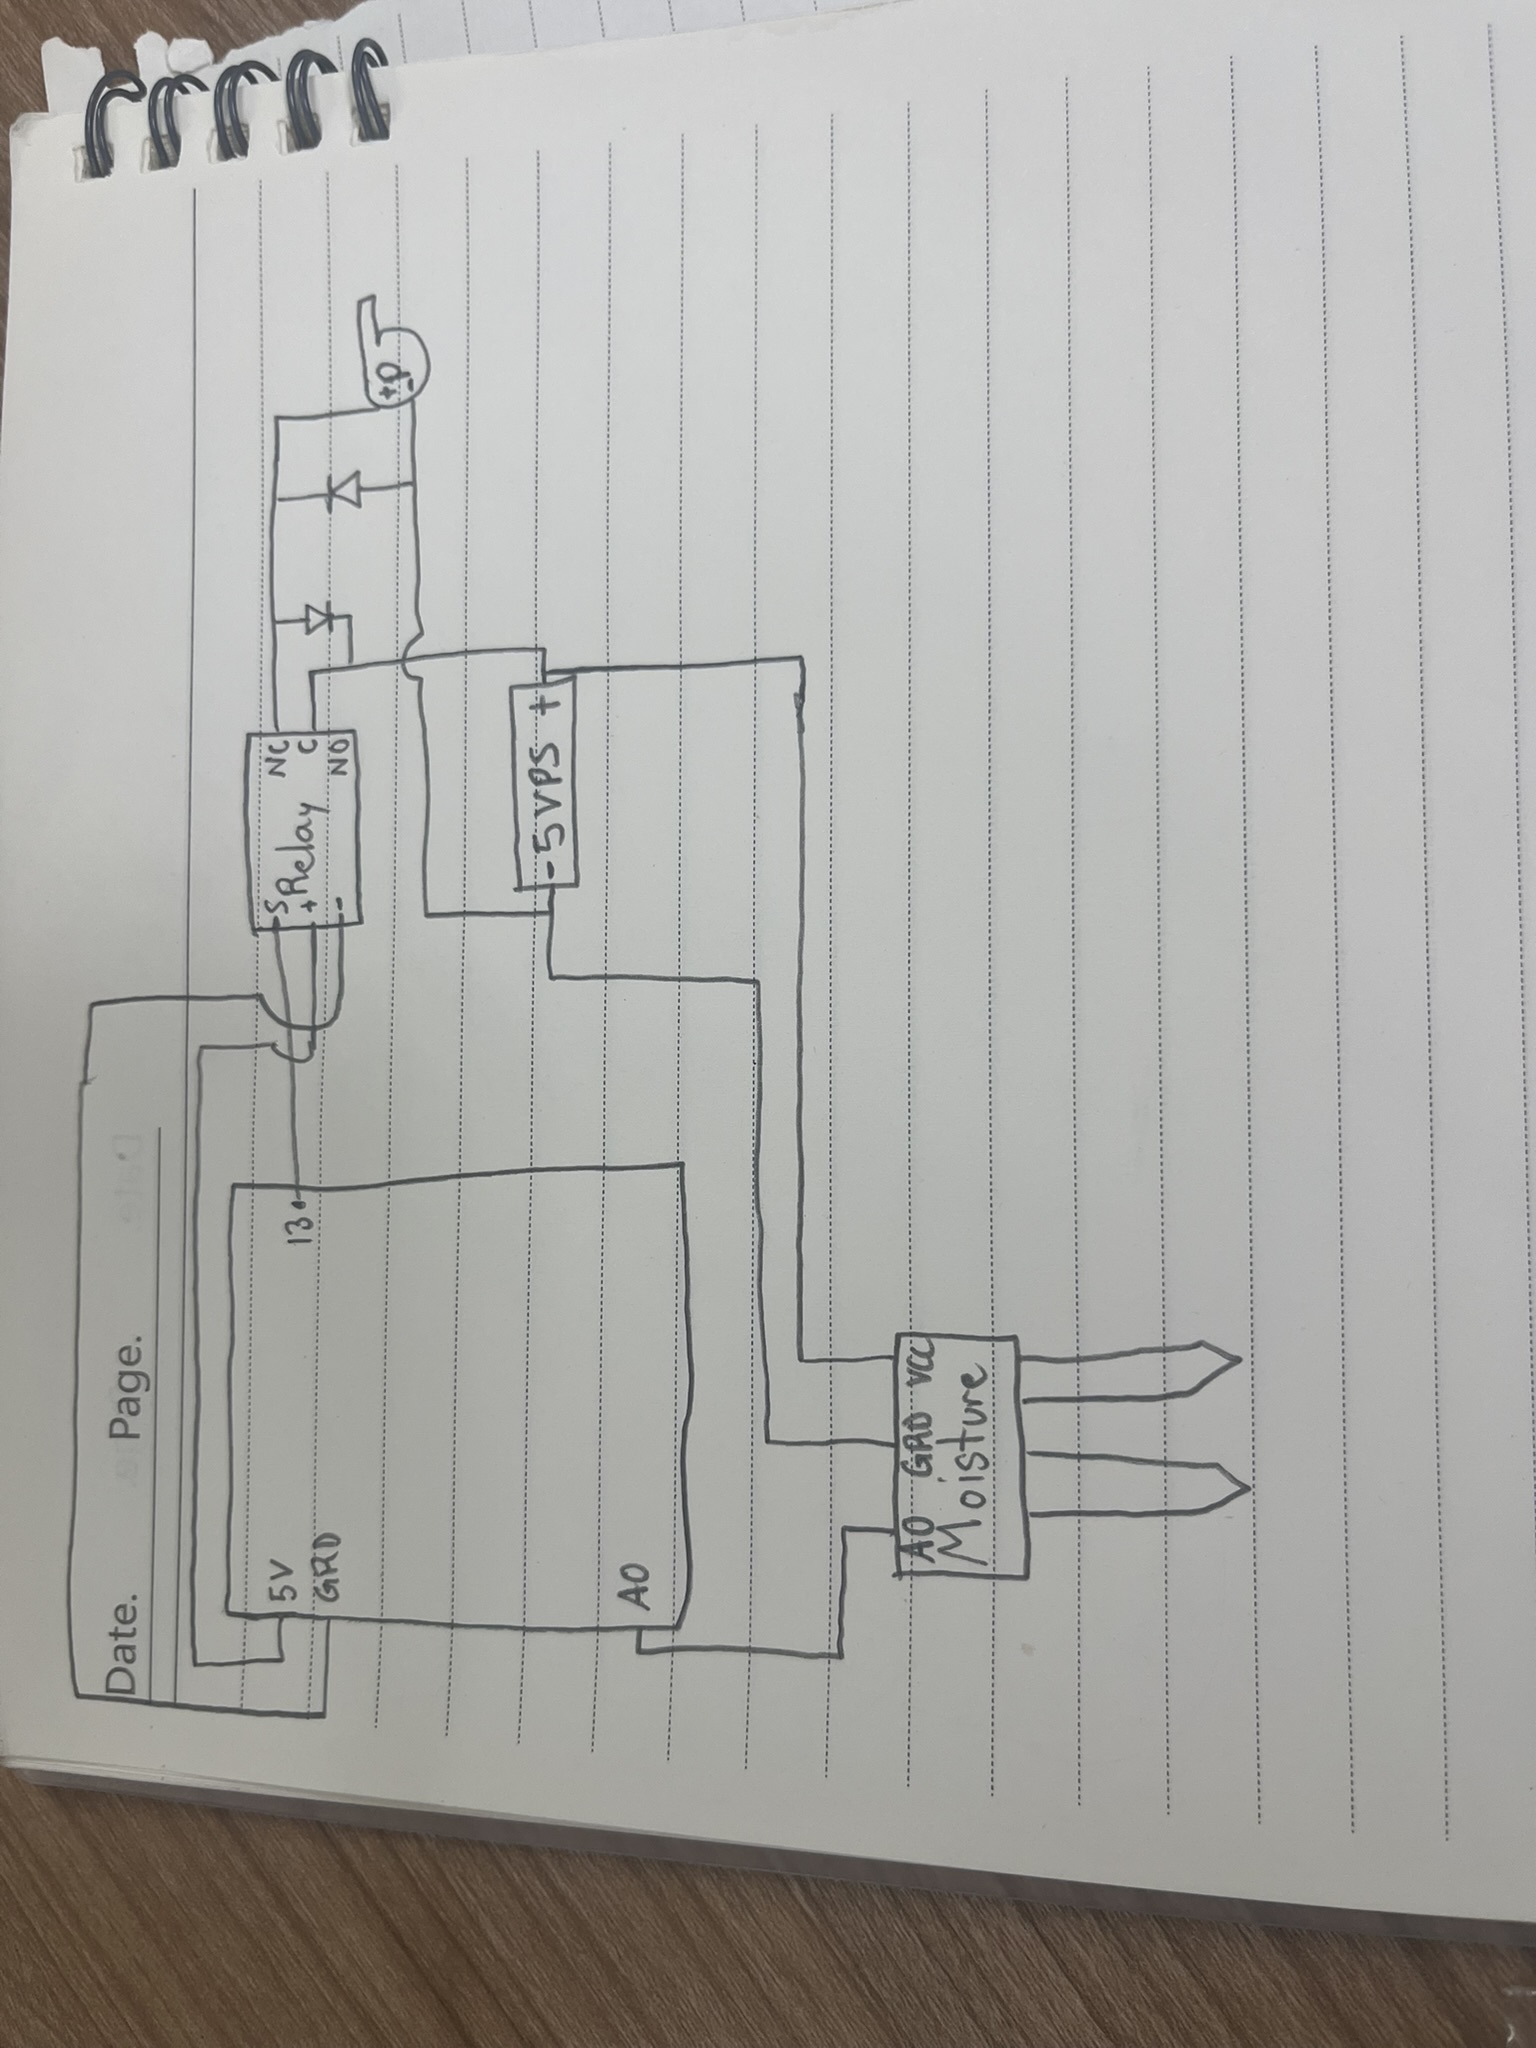 Date. Page.
5V
GRD
13
A0
S
+
-
Relay
NC
C
NO
+
P
-
- 5VPS +
A0 GRD VCC
Moisture